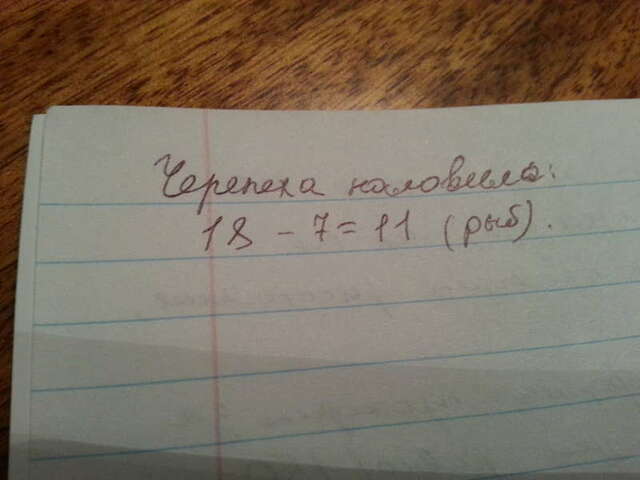 Черепеха наловила:
18 - 7 = 11 (рыб).